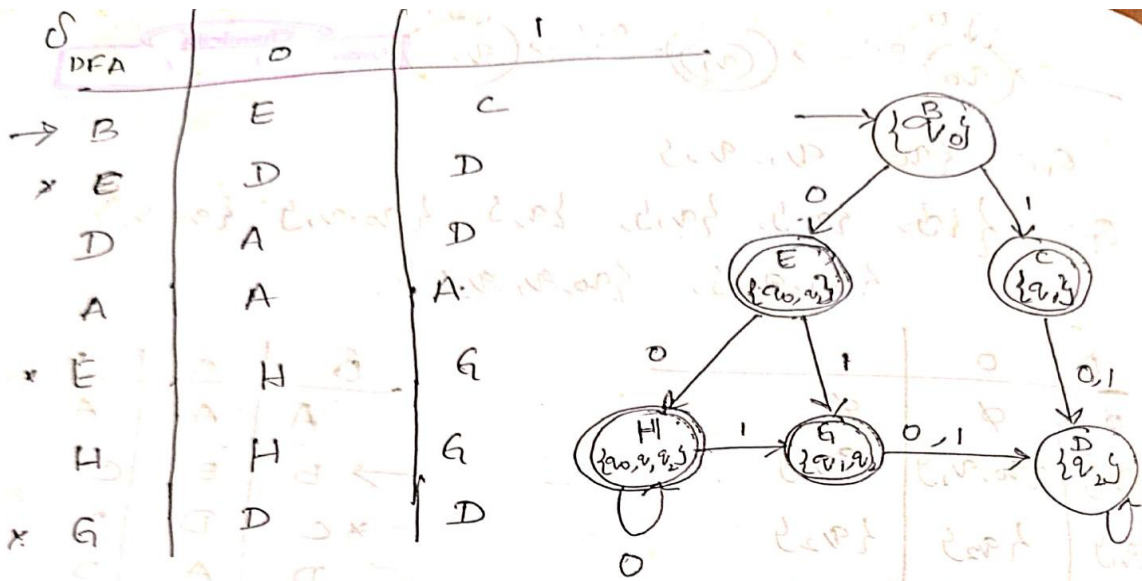 δ
DFA 0 1
→ B E C
* E D D
D A D
A A A
* E H G
H H G
* G D D
B
{q0}
0 1
E
C
{q1}
0 1 0,1
H
{q0,q1,q2}
1
G
0,1
D
{q2}
0